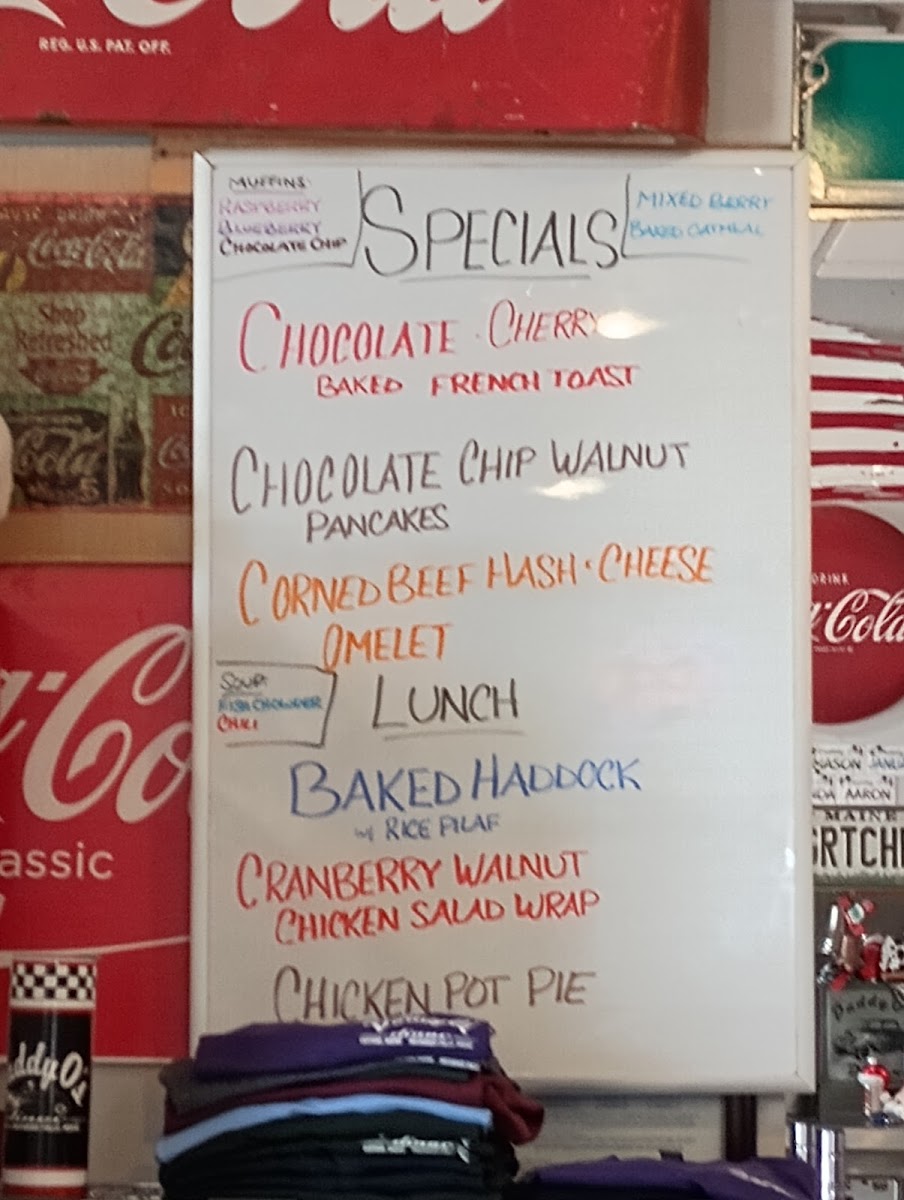 REG. U.S. PAT. OFF.
MUFFINS:
RASPBERRY
BLUEBERRY
CHOCOLATE CHIP
SPECIALS
MIXED BERRY
BAKED OATMEAL
CHOCOLATE · CHERRY
BAKED FRENCH TOAST
CHOCOLATE CHIP WALNUT
PANCAKES
CORNED BEEF HASH · CHEESE
OMELET
SOUP:
FISH CHOWDER
CHILI
LUNCH
BAKED HADDOCK
w/ RICE PILAF
CRANBERRY WALNUT
CHICKEN SALAD WRAP
CHICKEN POT PIE
Coca-Cola
Shop
Refreshed
Cola
5
assic
DRINK
Cola
MASON
AARON
MAINE
GRTCH
Daddy
ddy O's